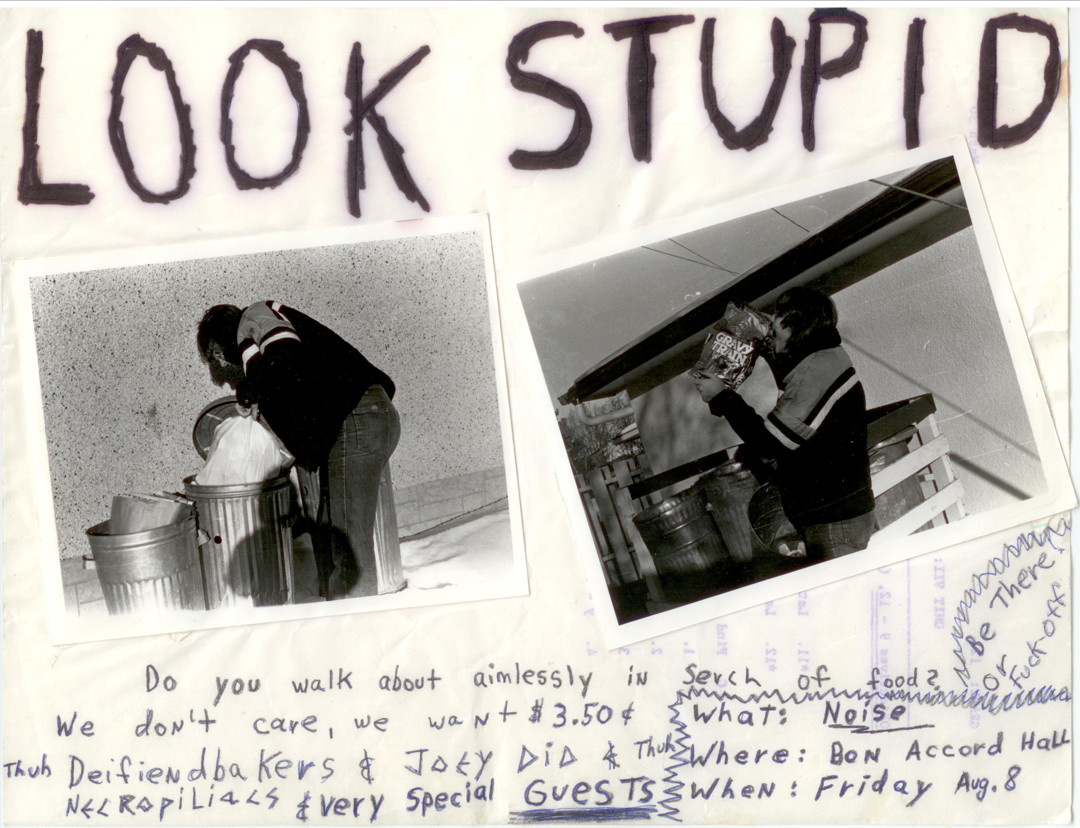 LOOK STUPID
GRAVY
TRAIN
Be There
Or
Fuck-Off
Do you walk about aimlessly in Serch of food?
We don't care, we want $3.50¢
Thuh DeifiendbaKers & JoEy DiD & Thuh
NECROpiLiacs & very Special GuesTs
What: Noise
Where: Bon Accord Hall
When: Friday Aug. 8